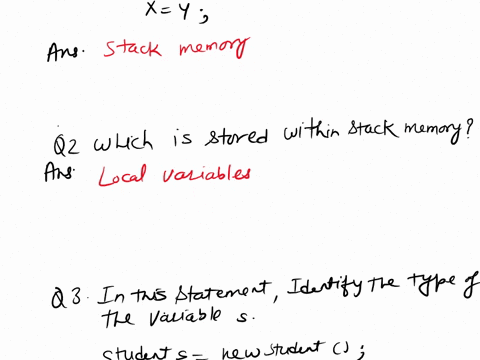 X = Y ;
Ans. Stack memory
Q2 Which is stored within stack memory?
Ans. Local variables
Q3. In this statement, Identify the type of
the variable s.
student s = new student () ;